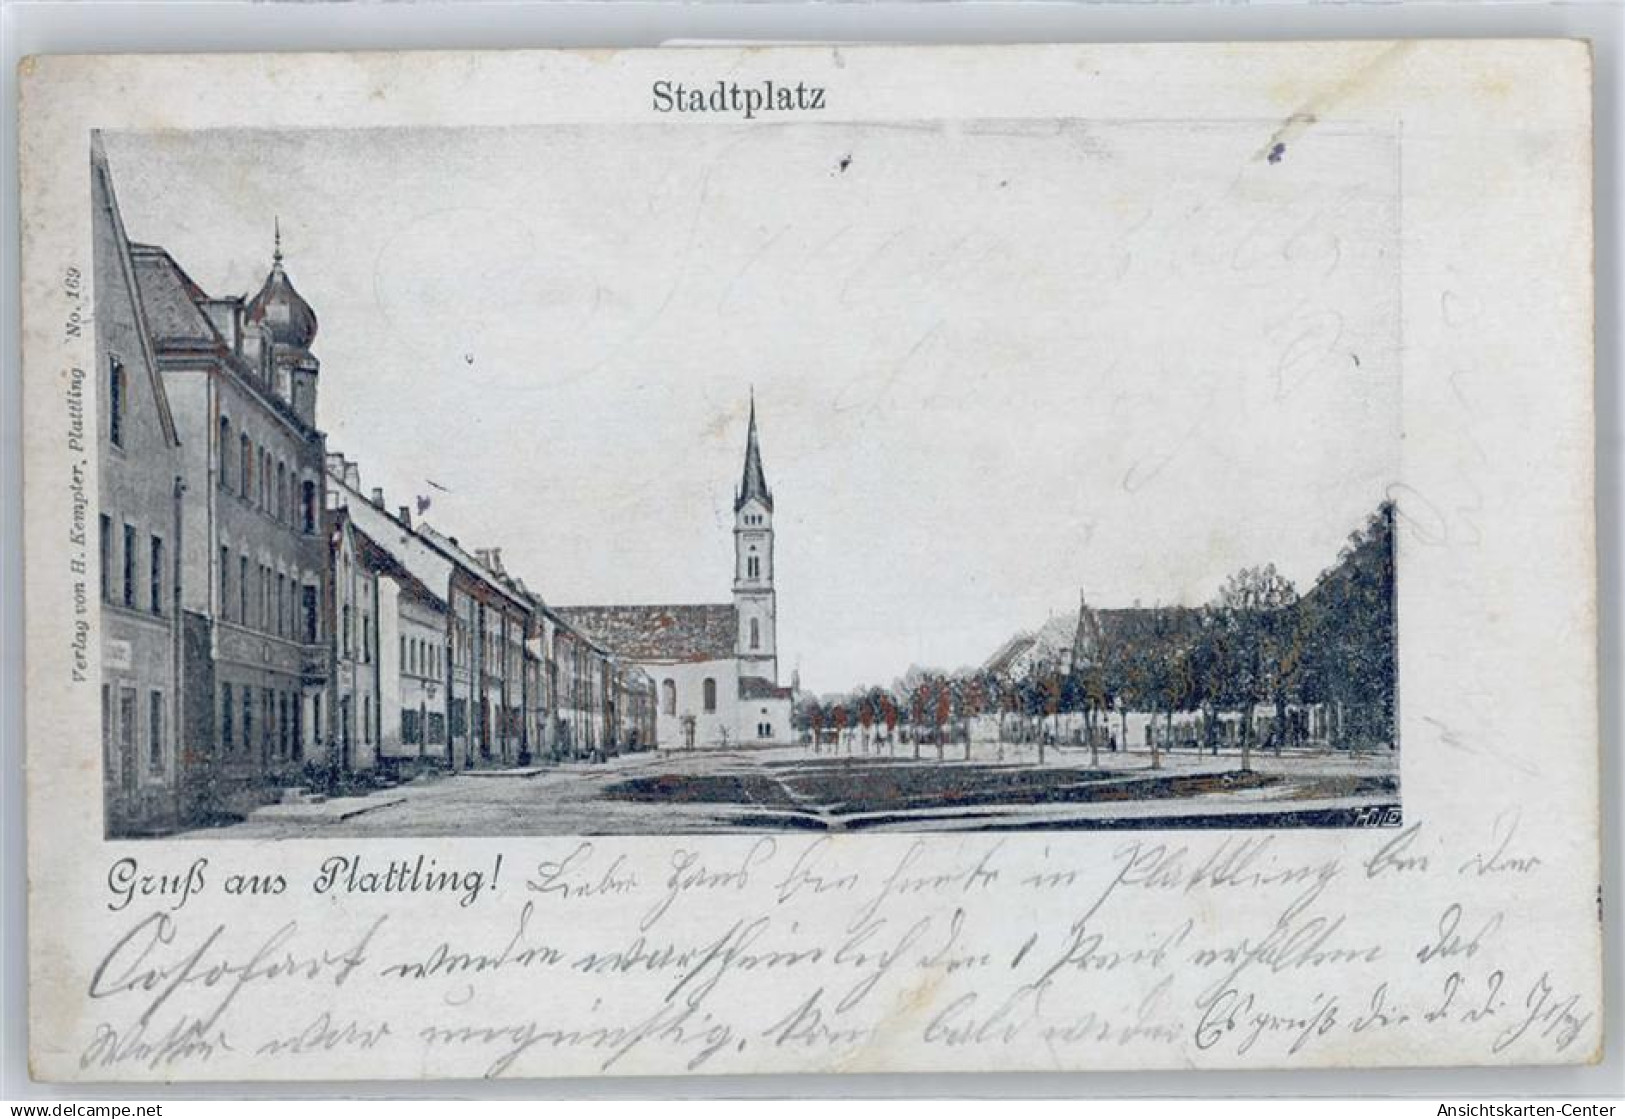 Stadtplatz
Verlag von H. Kempter, Plattling No. 169
Gruß aus Plattling! Lieber Hans bin heute in Plattling bei der
werden warscheinlich den 1 Preis erhalten das
Wetter war ungünstig. bald wieder Es grüßt Die d. d. Josef
© www.delcampe.net
Ansichtskarten-Center